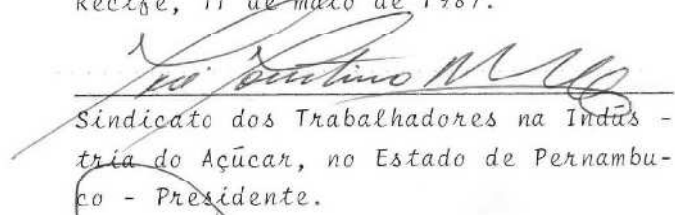 Recife, 11 de maio de 1987.
Sindicato dos Trabalhadores na Indús -
tria do Açúcar, no Estado de Pernambu-
co - Presidente.